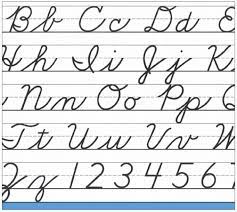 Bb Cc Dd E
Hh Ii Jj K
Nn Oo Pp
Tt Uu Vv W
Zz 1 2 3 4 5 6 7